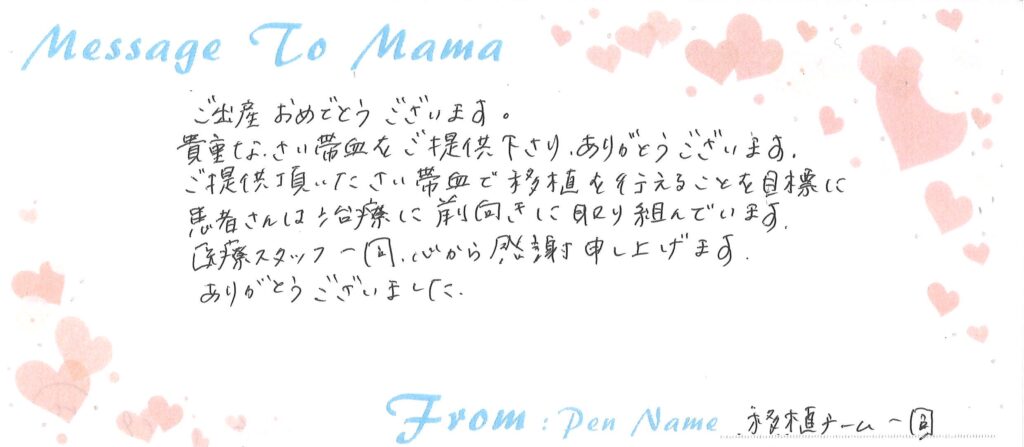 Message To Mama
ご出産 おめでとうございます。
貴重な、さい帯血をご提供下さり、ありがとうございます。
ご提供頂いたさい帯血で移植を行えることを目標に
患者さんは治療に前向きに取り組んでいます。
医療スタッフ一同、心から感謝申し上げます。
ありがとうございました。
From : Pen Name 移植チーム一同